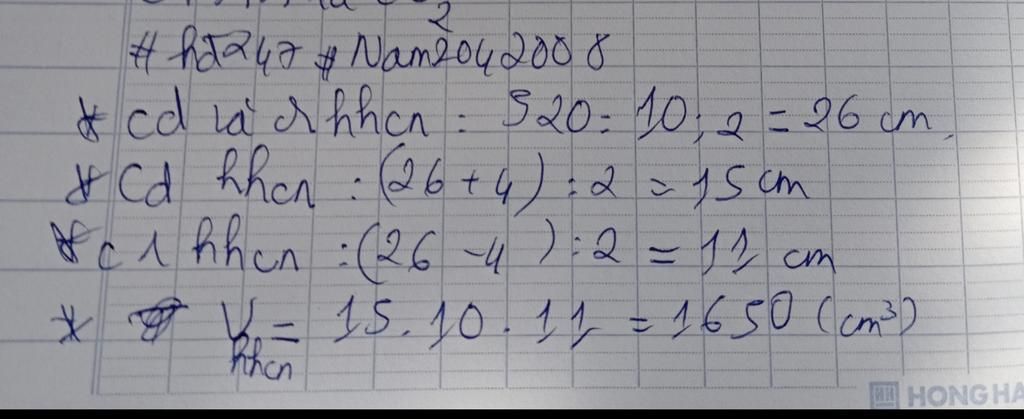 2
# hdt247 # Nam2042008
* cd và r hhcn : 520 : 10 : 2 = 26 cm.
* Cd hhcn : (26 + 4) : 2 = 15 cm
* c r hhcn : (26 - 4) : 2 = 11 cm
* V hhcn = 15 . 10 . 11 = 1650 (cm³)
HONG HA